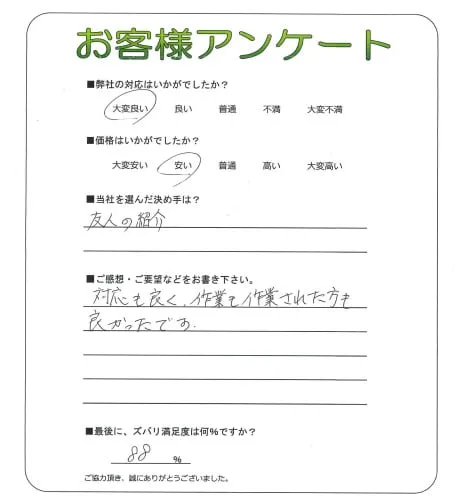 お客様アンケート
■弊社の対応はいかがでしたか？
大変良い 良い 普通 不満 大変不満
■価格はいかがでしたか？
大変安い 安い 普通 高い 大変高い
■当社を選んだ決め手は？
友人の紹介
■ご感想・ご要望などをお書き下さい。
対応も良く、作業も作業された方も
良かったです。
■最後に、ズバリ満足度は何%ですか？
88 %
ご協力頂き、誠にありがとうございました。